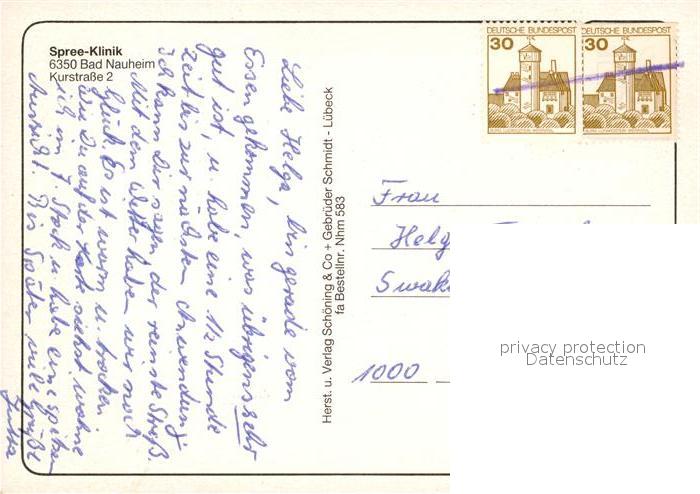 Spree-Klinik
6350 Bad Nauheim
Kurstraße 2
Liebe Helga, bin gerade vom
Essen gekommen, was übrigens sehr
gut ist, u. habe eine 1½ Stunde
Zeit bis zur nächsten Anwendung.
Ich kann Dir sagen der reinste Streß.
Mit dem Wetter haben wir noch
Glück. Es ist warm u. trocken
Wie Du auf der Karte siehst wohne
ich im 7. Stock u. habe eine
Aussicht. Bis später viele Grüße
Jutta
Herst. u. Verlag Schöning & Co + Gebrüder Schmidt - Lübeck
fa Bestellnr. Nhm 583
DEUTSCHE BUNDESPOST
30
DEUTSCHE BUNDESPOST
30
Frau
Helg
Swak
1000
privacy protection
Datenschutz